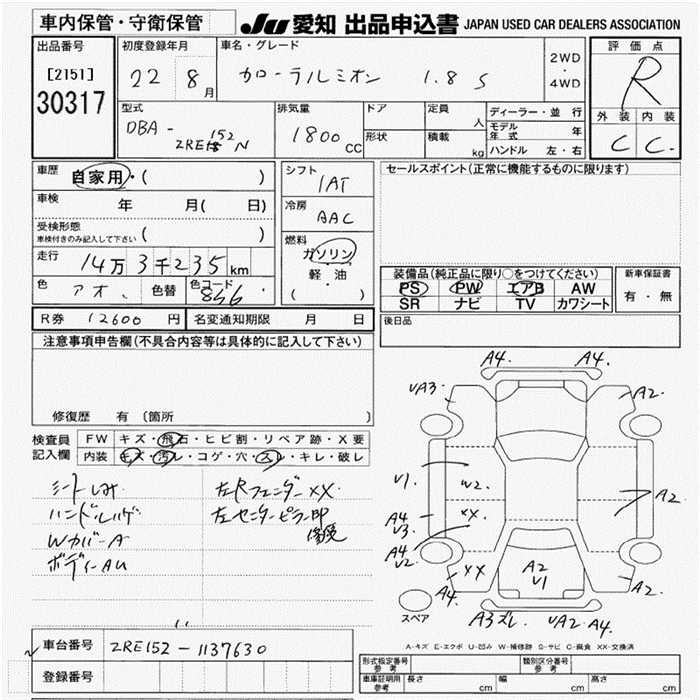 車内保管・守衛保管
JU 愛知 出品申込書 JAPAN USED CAR DEALERS ASSOCIATION
出品番号
[2151]
30317
初度登録年月
22 8月
車名・グレード
カローラルミオン 1.8 S
2WD
・
4WD
評価点
R
外装 内装
C C
型式
DBA-
ZRE152N
排気量
1800 CC
ドア
形状
定員 人
積載 kg
ディーラー・並行
モデル年式 年
ハンドル 左・右
車歴
自家用・( )
車検 年 月( 日)
受検形態
車検付きのみ記入して下さい ( )
走行 14万3千235km
色 アオ 色替 色コード 8S6
シフト
1AT
冷房
AAC
燃料
ガソリン
軽・油
( )
セールスポイント(正常に機能するものに限ります)
装備品(純正品に限り○をつけてください)
PS PW エアB AW
SR ナビ TV カワシート
新車保証書
有・無
R券 12600円 名変通知期限 月 日
後日品
注意事項申告欄(不具合内容等は具体的に記入して下さい)
修復歴 有〔箇所
検査員記入欄
FW キズ・飛石・ヒビ割・リペア跡・X要
内装 キズ・汚レ・コゲ・穴・スレ・キレ・破レ
シートしみ
ハンドルハゲ
WカバーA
ボディーAU
左Rフェンダー XX
左センターピラー
A4. A4.
UA3. A2.
V1 W2.
A4 V3 XX.
A2
A4 V2
XX
A2 V1
A4.
A2.
スペア
A3ズレ. UA2 A4.
A-キズ E-エクボ U-凹み W-補修跡 S-サビ C-腐食 XX-交換済
車台番号 ZRE152-1137630
登録番号
形式指定番号 参考
類別区分番号 参考
車庫証明用 参考 長さ cm 幅 cm 高さ cm